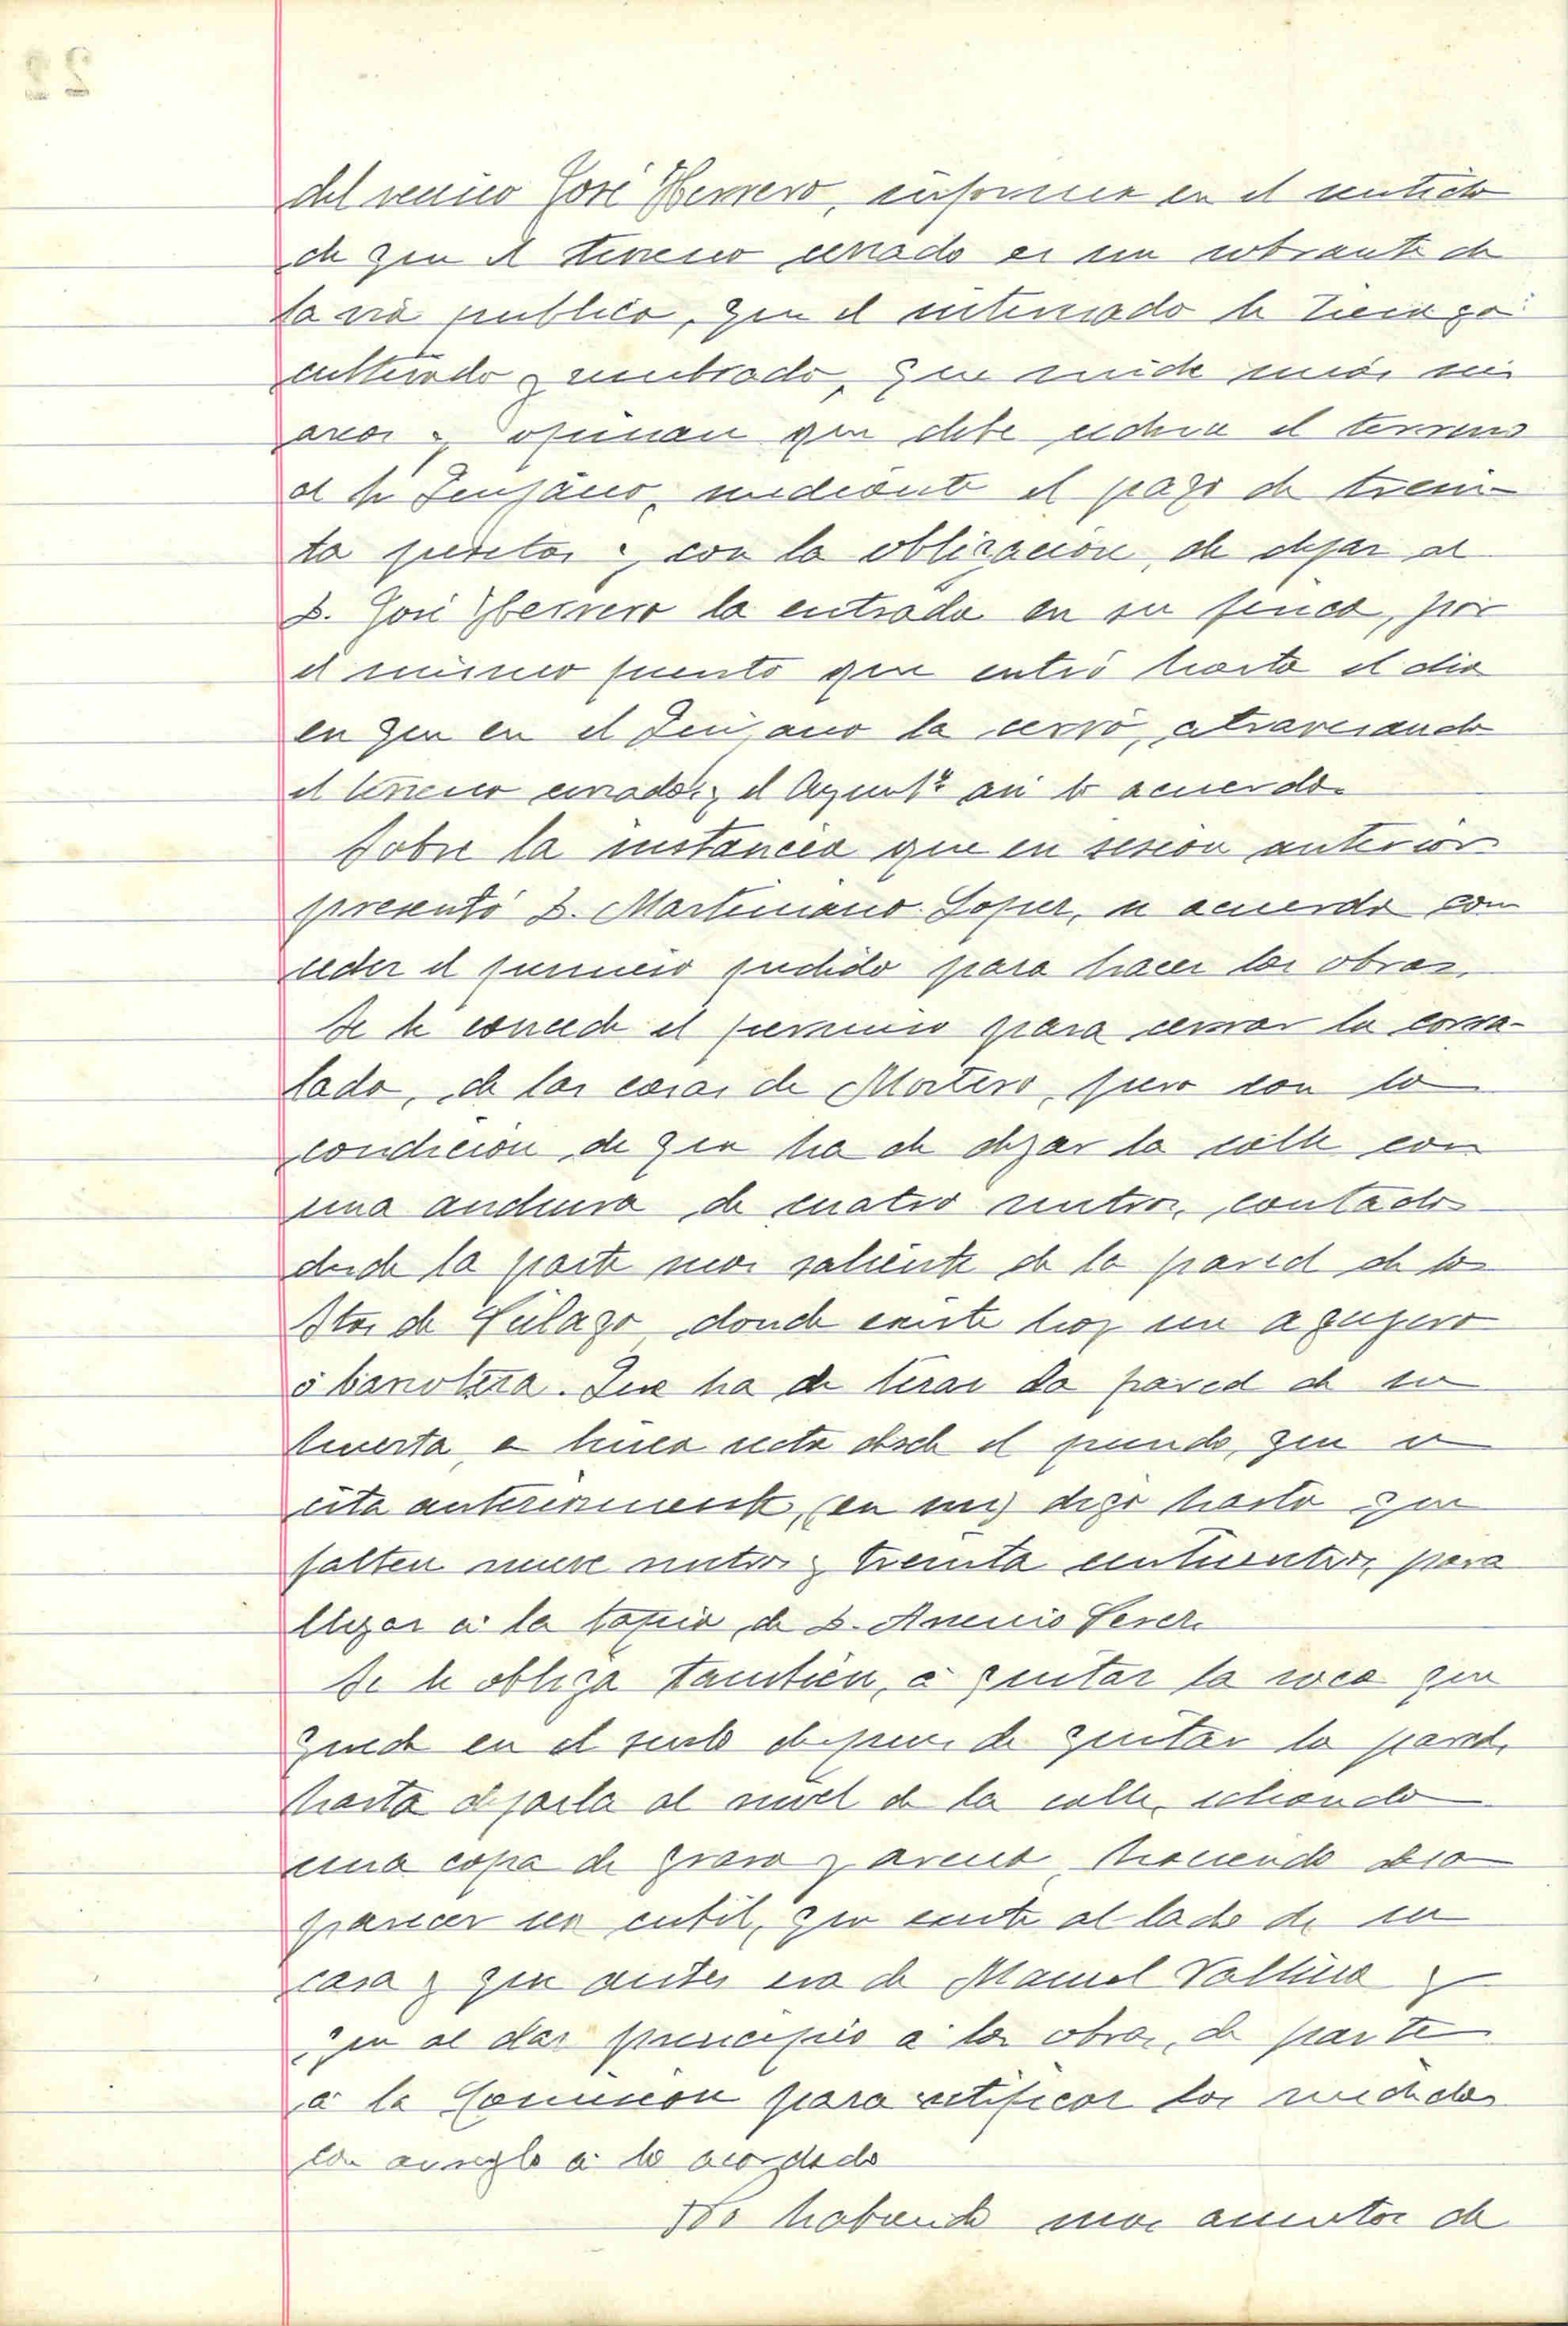 del vecino José Herrero, informar en el sentido
de que el terreno cerrado es un sobrante de
la via publica, que el interesado le tiene ya
cultivado y sembrado, que mide unas seis
areas y opinan que debe cederse el terreno
al Sr mediante el pago de trein-
ta pesetas y con la obligacion de dejar al
D. José Herrero la entrada en su finca, por
el mismo punto que entró hasta el dia
en que en el la cerró, atravesando
el terreno cerrado y el Ayuntº asi lo acuerda.
Sobre la instancia que en sesion anterior
presentó D. Martiniano Lopez, se acuerda con
ceder el permiso pedido para hacer las obras.
Se le concede el permiso para cerrar la corra-
lada, de las casas de Mortero, pero con la
condicion de que ha de dejar la calle con
una anchura de cuatro metros, contado
desde la parte mas saliente de la pared de los
Stos de donde existe hoy un agugero
ó Que ha de tirar la pared de su
huerta, a linea recta desde el punto, que se
cita anteriormente, (en un) digo hasta que
falten nueve metros y treinta centimetros, para
llegar á la tapia de D. Arsenio
Se le obliga tambien, á quitar la roca que
quede en el suelo despues de quitar la pared,
hasta dejarla al nivel de la calle, echando
una capa de grava y arena, haciendo desa
parecer un cubil, que existe al lado de su
casa y que antes era de Manuel Vallina y
que al dar principio a las obras, de parte
á la Comision para rectificar las medidas
con arreglo á lo acordado
No habiendo mas asuntos de